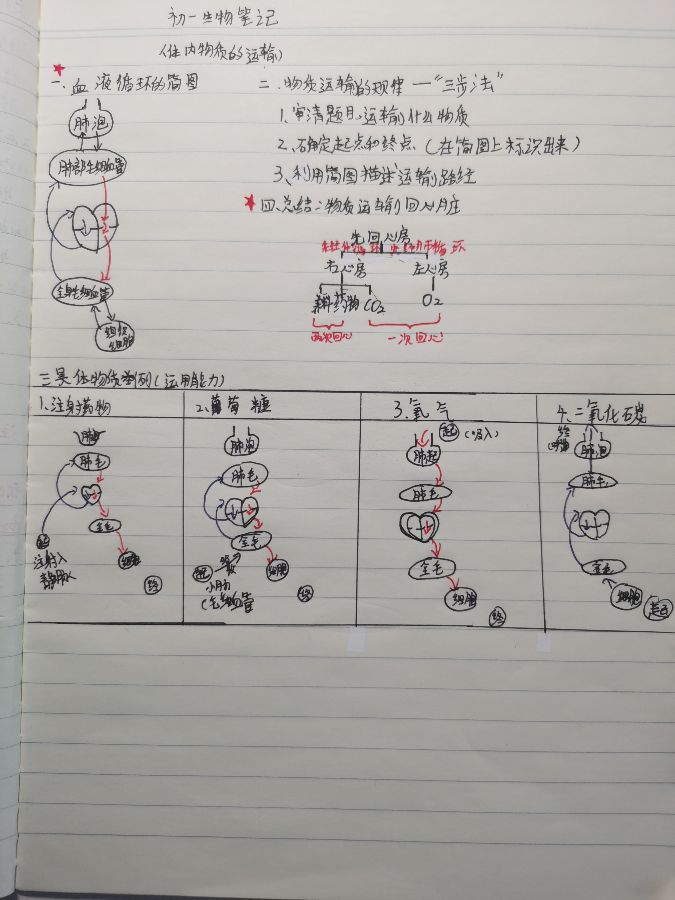 初一生物笔记
(体内物质的运输)
一.血液循环的简图
肺泡
肺部毛细血管
全身毛细血管
组织细胞
二.物质运输的规律一“三步法”
1.审清题目,运输什么物质
2.确定起点和终点.(在简图上标识出来)
3.利用简图描述运输路径
四.总结:物质运输回心脏
先回心房
右心房 左心房
药物 CO2 O2
两次回心 一次回心
三.具体物质举例(运用能力)
1.注射药物
肺
肺毛
全毛
细胞
起
注射入
静脉
终
2.葡萄糖
肺泡
肺毛
全毛
起
细胞
小肠
终
3.氧气
起 (吸入)
肺
肺毛
全毛
细胞
终
4.二氧化碳
终
肺泡
肺毛
全毛
细胞
起